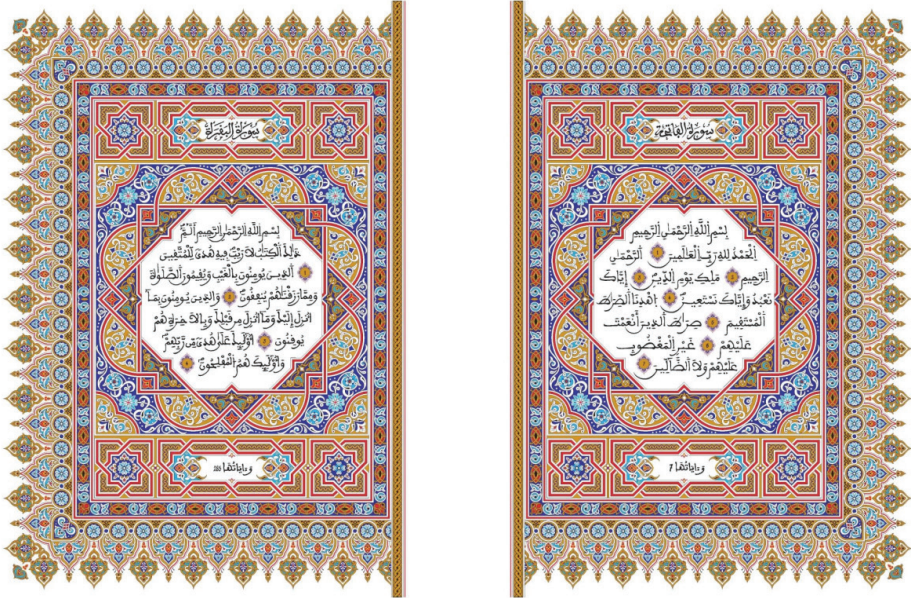 سُورَةُ الفَاتِحَة
بِسْمِ اللَّهِ الرَّحْمَٰنِ الرَّحِيمِ
الْحَمْدُ لِلهِ رَبِّ الْعَٰلَمِينَ الرَّحْمَٰنِ
الرَّحِيمِ مَلِكِ يَوْمِ الدِّينِ إِيَّاكَ
نَعْبُدُ وَإِيَّاكَ نَسْتَعِينُ اهْدِنَا الصِّرَٰطَ
الْمُسْتَقِيمَ صِرَٰطَ الذِينَ أَنْعَمْتَ
عَلَيْهِمْ غَيْرِ الْمَغْضُوبِ
عَلَيْهِمْ وَلَا الضَّالِّينَ
وءاياتها 7
سُورَةُ البَقَرَةِ
بِسْمِ اللَّهِ الرَّحْمَٰنِ الرَّحِيمِ أَلَمِّ
ذَٰلِكَ الْكِتَٰبُ لَا رَيْبَ فِيهِ هُدىً لِّلْمُتَّقِينَ
الذِينَ يُومِنُونَ بِالْغَيْبِ وَيُقِيمُونَ الصَّلَوٰةَ
وَمِمَّا رَزَقْنَٰهُمْ يُنفِقُونَ وَالذِينَ يُومِنُونَ بِمَا
أُنزِلَ إِلَيْكَ وَمَا أُنزِلَ مِن قَبْلِكَ وَبِالَاخِرَةِ هُمْ
يُوقِنُونَ أُوْلَٰئِكَ عَلَىٰ هُدىً مِّن رَّبِّهِمْ
وَأُوْلَٰئِكَ هُمُ الْمُفْلِحُونَ
وءاياتها